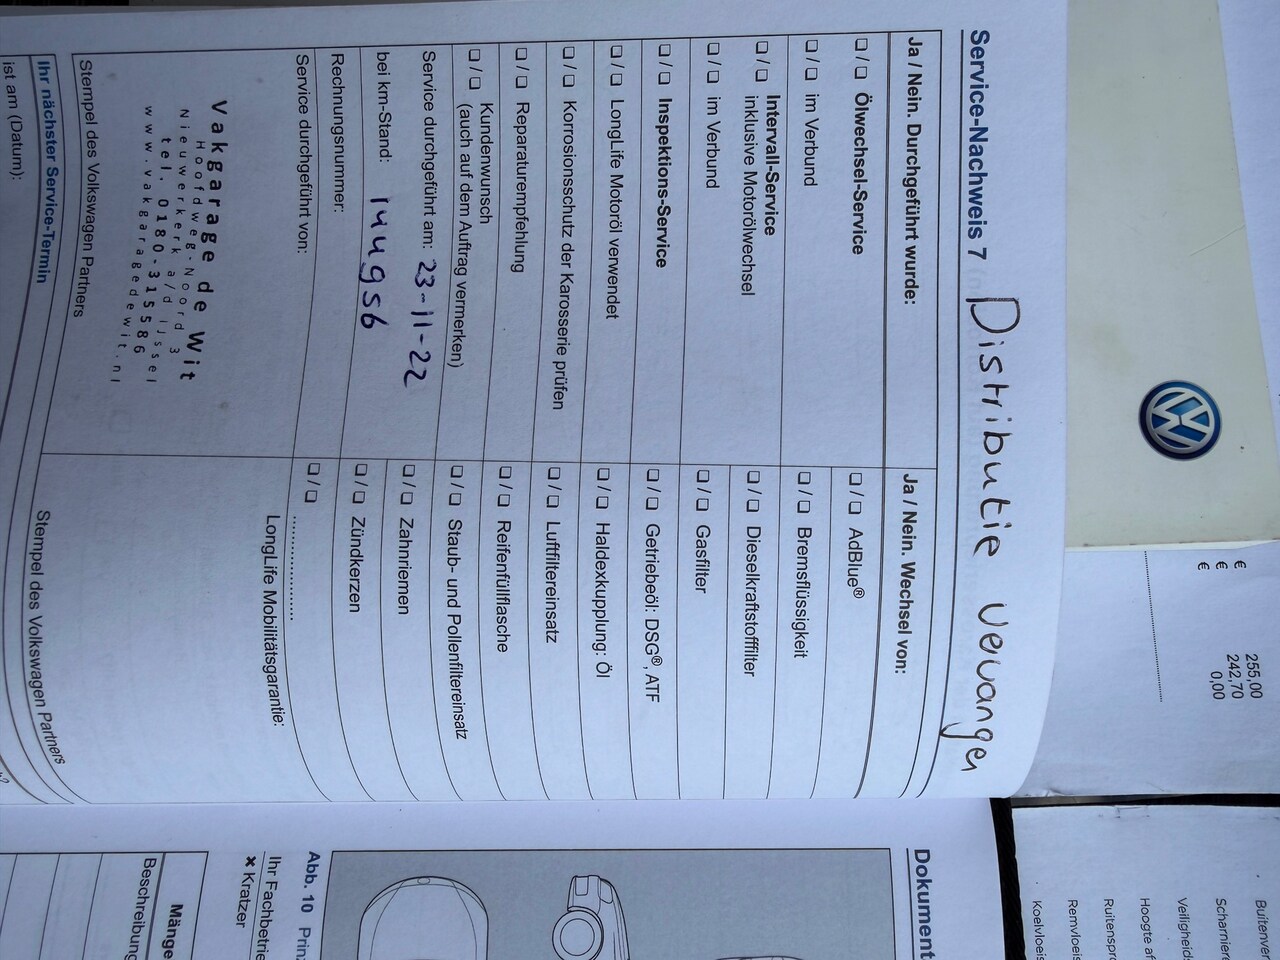 Service-Nachweis 7
Distributie vervangen
Ja / Nein. Durchgeführt wurde:
❑ / ❑ Ölwechsel-Service
❑ / ❑ im Verbund
❑ / ❑ Intervall-Service
inklusive Motorölwechsel
❑ / ❑ im Verbund
❑ / ❑ Inspektions-Service
❑ / ❑ LongLife Motoröl verwendet
❑ / ❑ Korrosionsschutz der Karosserie prüfen
❑ / ❑ Reparaturempfehlung
❑ / ❑ Kundenwunsch
(auch auf dem Auftrag vermerken)
Service durchgeführt am: 23-11-22
bei km-Stand: 144956
Rechnungsnummer:
Service durchgeführt von:
Vakgarage de Wit
Hoofdweg-Noord 3
Nieuwerkerk a/d IJssel
tel. 0180-315586
www.vakgaragedewit.nl
Stempel des Volkswagen Partners
Ihr nächster Service-Termin
ist am (Datum):
Ja / Nein. Wechsel von:
❑ / ❑ AdBlue®
❑ / ❑ Bremsflüssigkeit
❑ / ❑ Dieselkraftstofffilter
❑ / ❑ Gasfilter
❑ / ❑ Getriebeöl: DSG®, ATF
❑ / ❑ Haldexkupplung: Öl
❑ / ❑ Luftfiltereinsatz
❑ / ❑ Reifenfüllflasche
❑ / ❑ Staub- und Pollenfiltereinsatz
❑ / ❑ Zahnriemen
❑ / ❑ Zündkerzen
❑ / ❑ ....................
LongLife Mobilitätsgarantie:
Stempel des Volkswagen Partners
€ 255,00
€ 242,70
€ 0,00
Dokument
Abb. 10 Prin
Ihr Fachbetrie
✖ Kratzer
Mänge
Beschreibung
Buitenver
Scharniere
Veiligheid
Hoogte af
Ruitenspr
Remvloeis
Koelvloeis